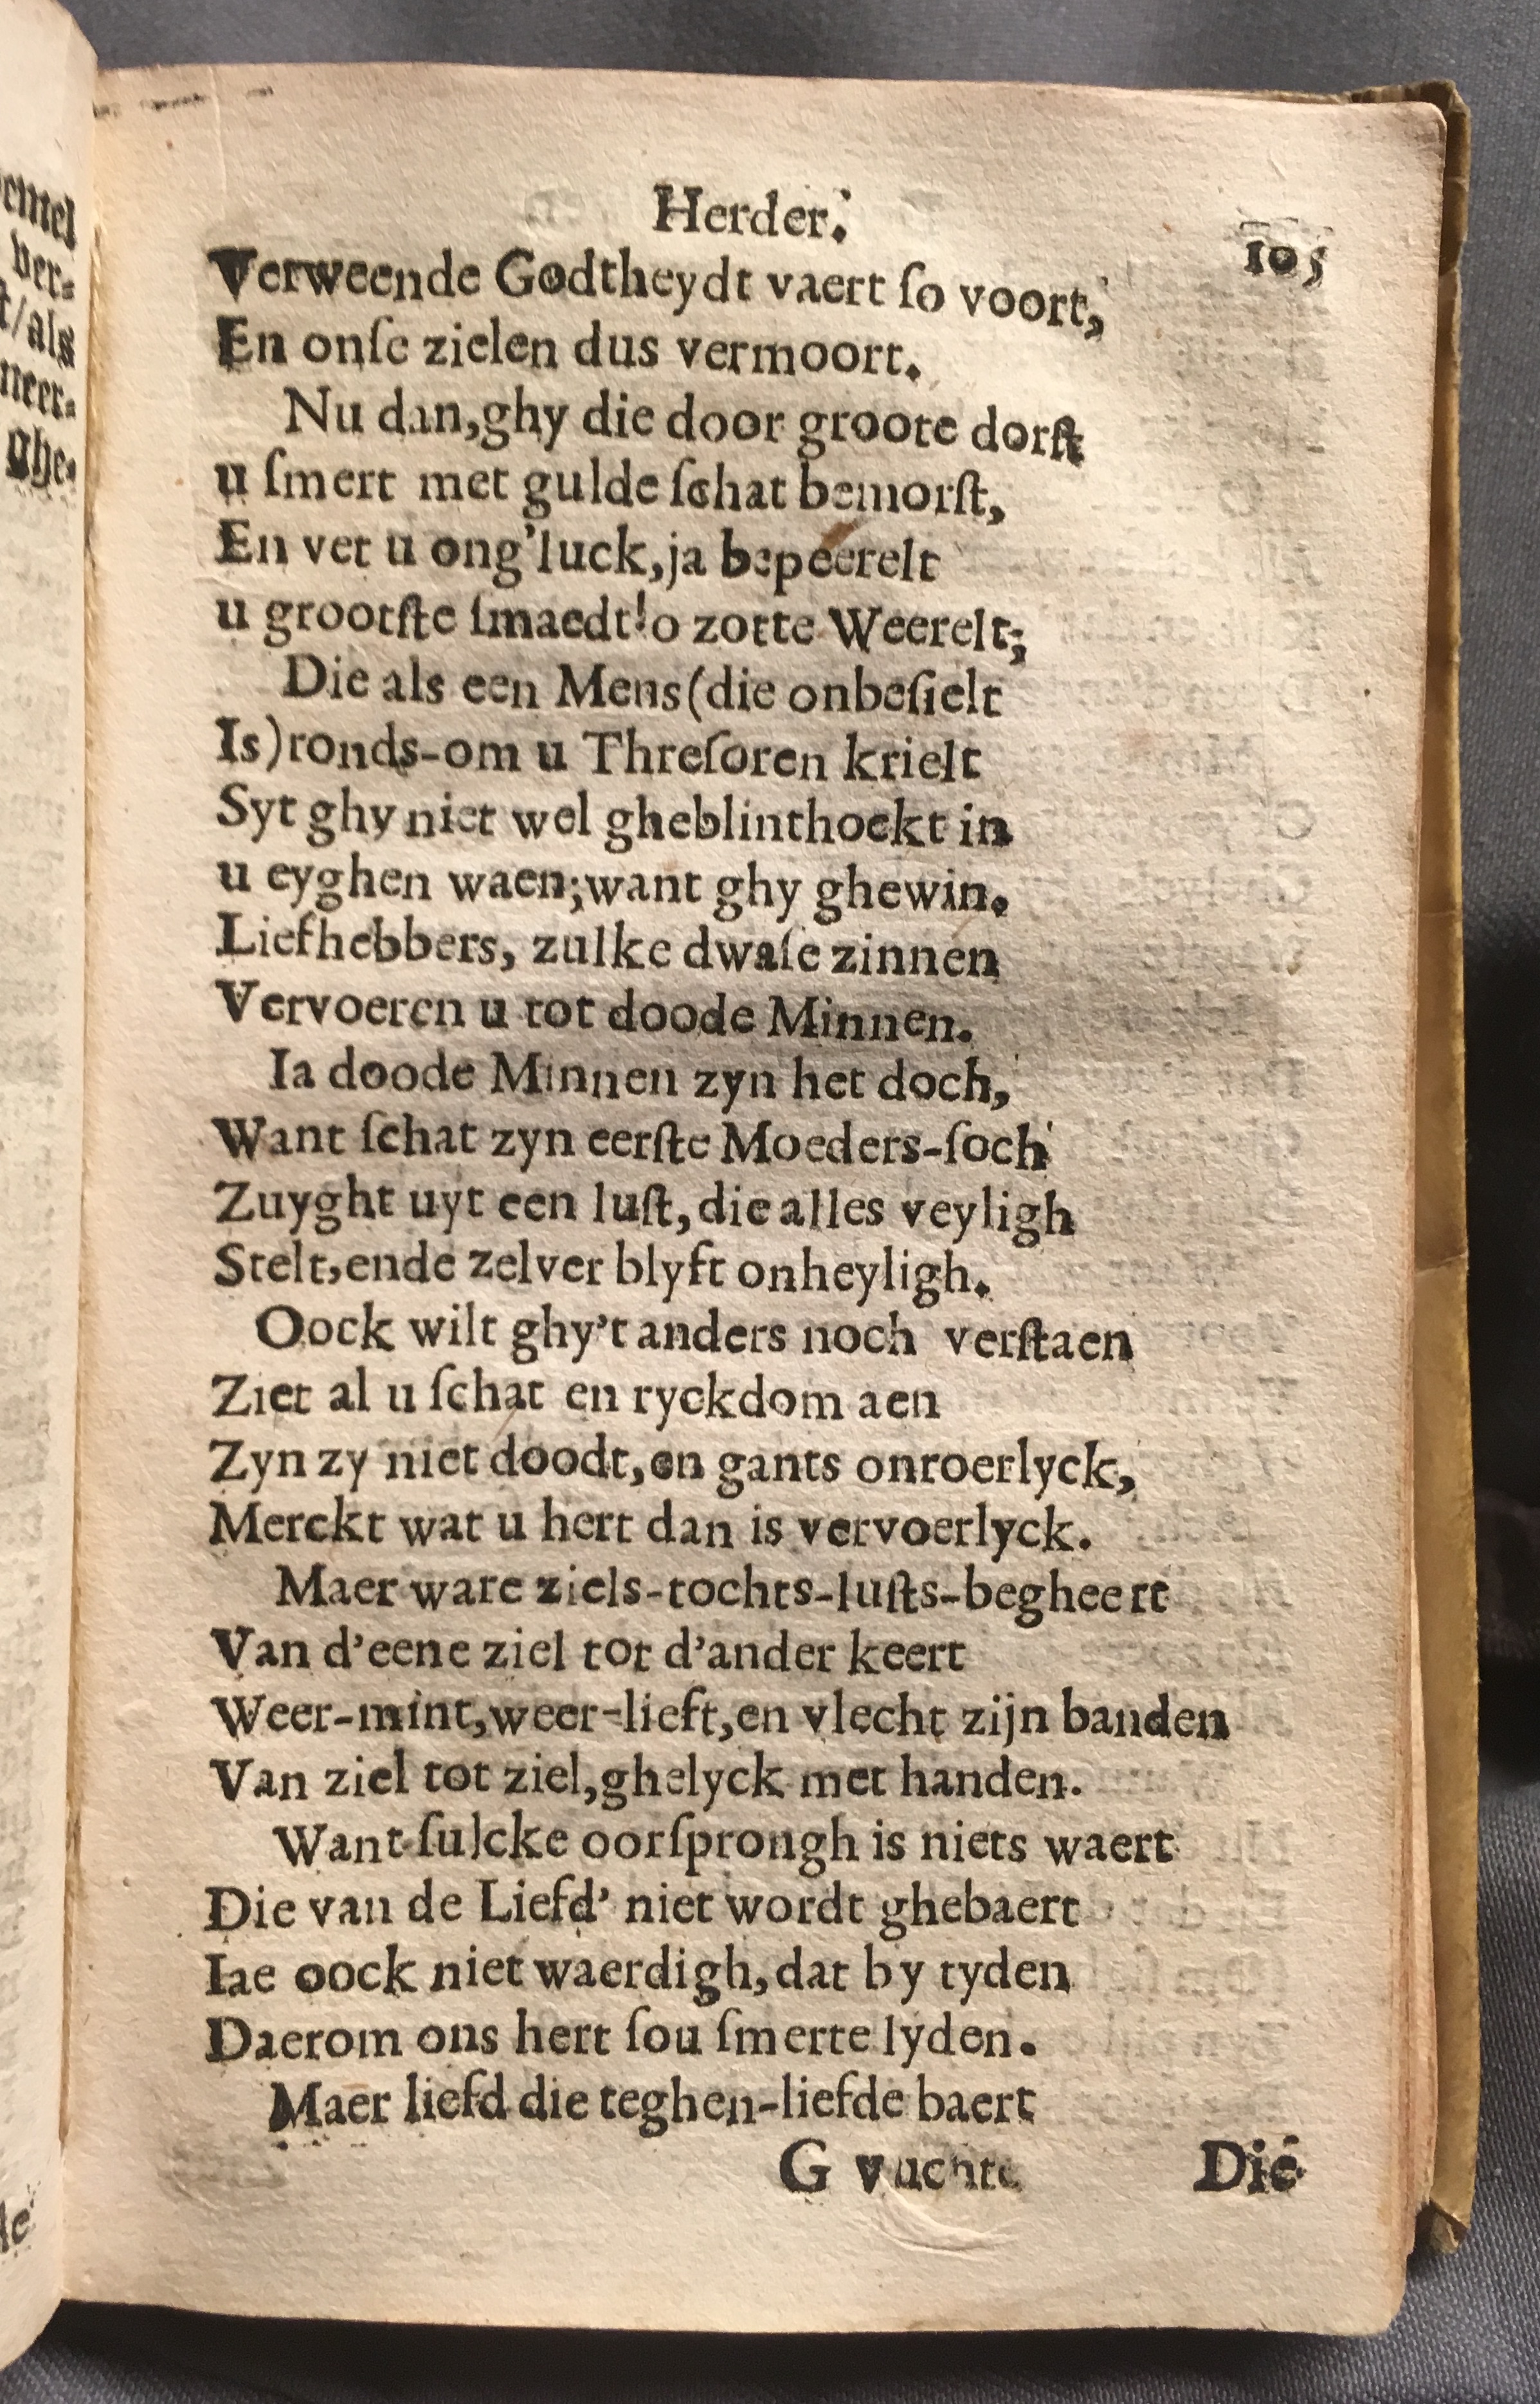 emel
ver-
t/als
neer-
ghe-
Herder.
105
Verweende Godtheydt vaert ſo voort,
En onſe zielen dus vermoort.
Nu dan,ghy die door groote dorſt
u ſmert met gulde ſchat bemorſt,
En vet u ong'luck,ja bepeerelt
u grootſte ſmaedt!o zotte Weerelt;
Die als een Mens(die onbeſielt
Is)ronds-om u Threſoren krielt
Syt ghy niet wel gheblinthoekt in
u eyghen waen;want ghy ghewin.
Liefhebbers, zulke dwaſe zinnen
Vervoeren u tot doode Minnen.
Ia doode Minnen zyn het doch,
Want ſchat zyn eerſte Moeders-ſoch
Zuyght uyt een luſt,die alles veyligh
Stelt,ende zelver blyft onheyligh.
Oock wilt ghy't anders noch verſtaen
Ziet al u ſchat en ryckdom aen
Zyn zy niet doodt,en gants onroerlyck,
Merckt wat u hert dan is vervoerlyck.
Maer ware ziels-tochts-luſts-begheert
Van d'eene ziel tot d'ander keert
Weer-mint,weer-lieft,en vlecht zijn banden
Van ziel tot ziel,ghelyck met handen.
Want ſulcke oorſprongh is niets waert
Die van de Liefd' niet wordt ghebaert
Iae oock niet waerdigh,dat by tyden
Daerom ons hert ſou ſmerte lyden.
Maer liefd die teghen-liefde baert
G vuchte Die